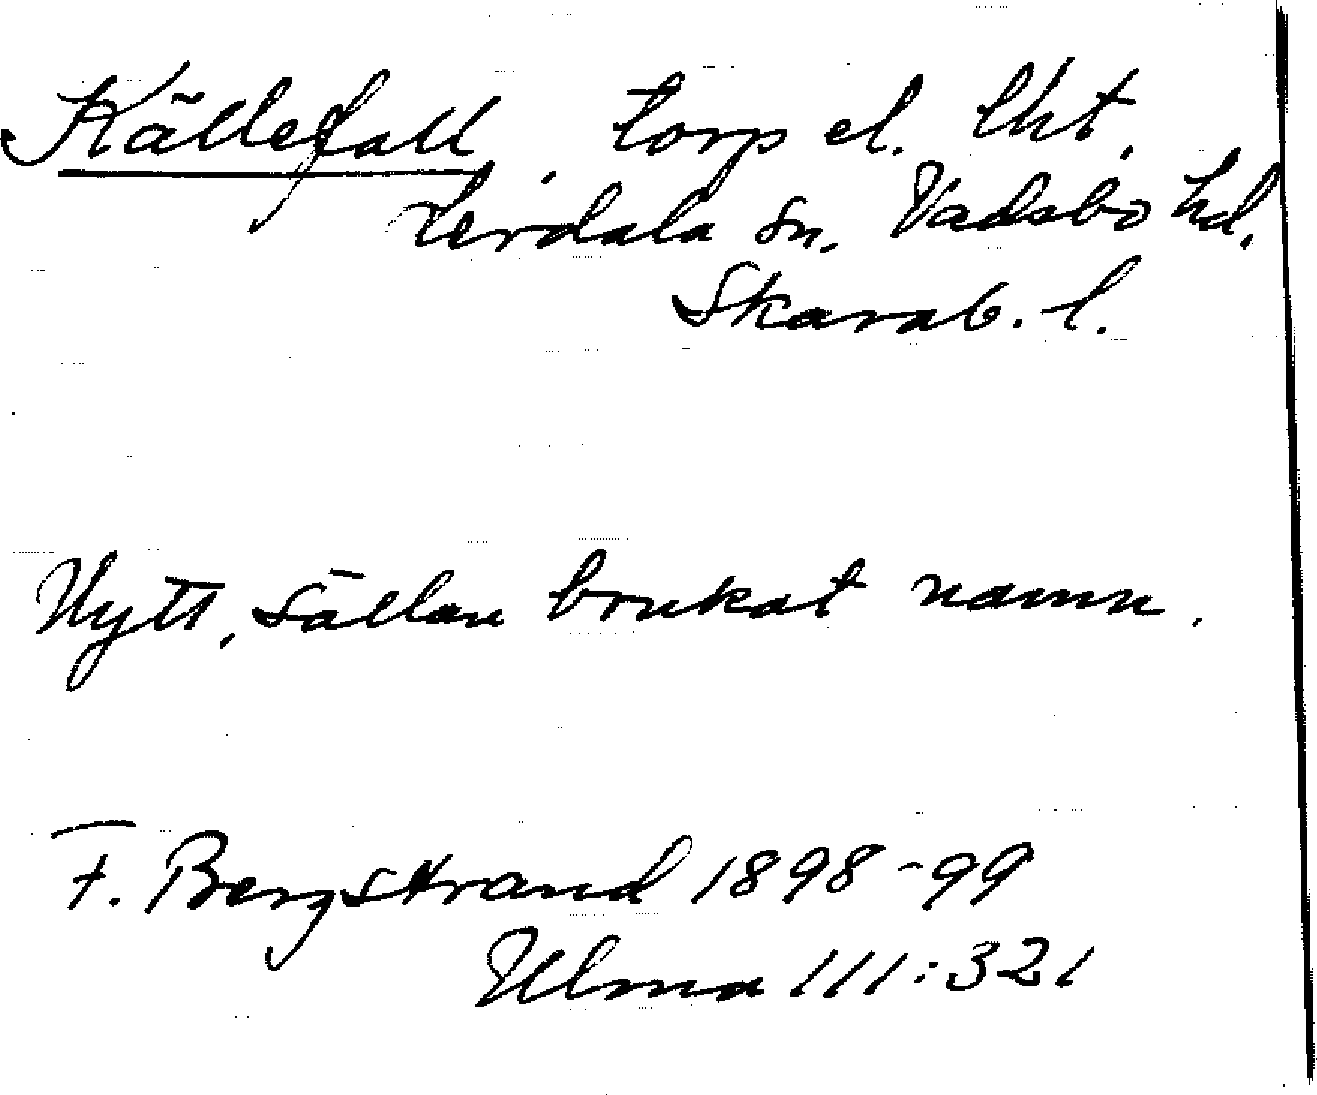 Källefall, torp el. lht,
Lerdala sn, Vadsbo hd,
Skarab. l.
Nytt, sällan brukat namn.
F. Bergstrand 1898-99
Ulma 111:321